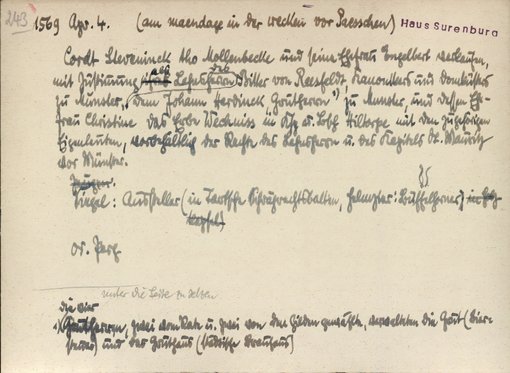 243
1569 Apr. 4. (am maendage in der wecken vor Paesschen) Haus Surenburg
Cordt Steveninck tho Mollenbecke und seine Ehefrau Engelbert verkaufen,
mit Zustimmung des Lehnsherrn Bitter von Raesfeldt Kanonikers und Domküsters
zu Münster, dem Johann Herdinck Grutherrn 1) zu Munster, und dessen Ehe-
frau Christine das Erbe Wechniss in Ksp. u. Bsch. Hiltorpe mit den zugehörigen
Eigenleuten, vorbehaltlich der Rechte des Lehnsherrn u. des Kapitels St. Mauritz
vor Münster.
Siegel: Aussteller (in Tartsche Schrägrechtsbalken, Helmzier: Büffelhörner)
Or. Perg.
unter die Seite zu setzen
die vier
1) Grutherren, zwei vom Rate u. zwei von den Gilden gewählte, verwalteten die Grut (Bier-
steuer) und das Gruthaus (städtische Brauhaus)